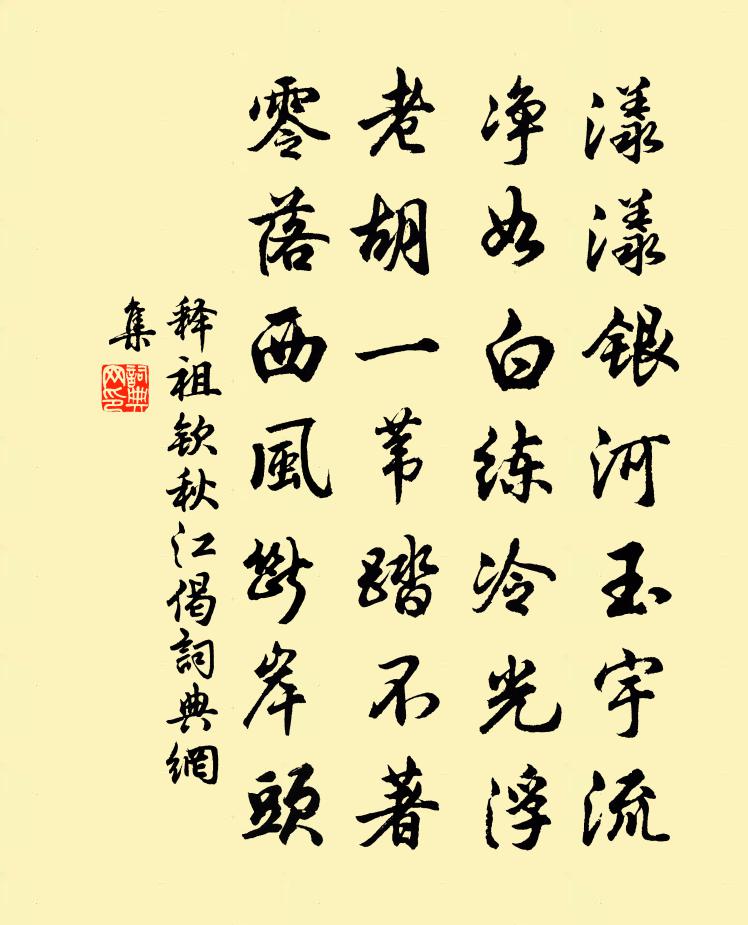 漾漾銀河玉宇流
净如白练冷光浮
老胡一苇踏不著
零落西風斷岸頭
释祖钦秋江偈詞典網
集
詞典
网印